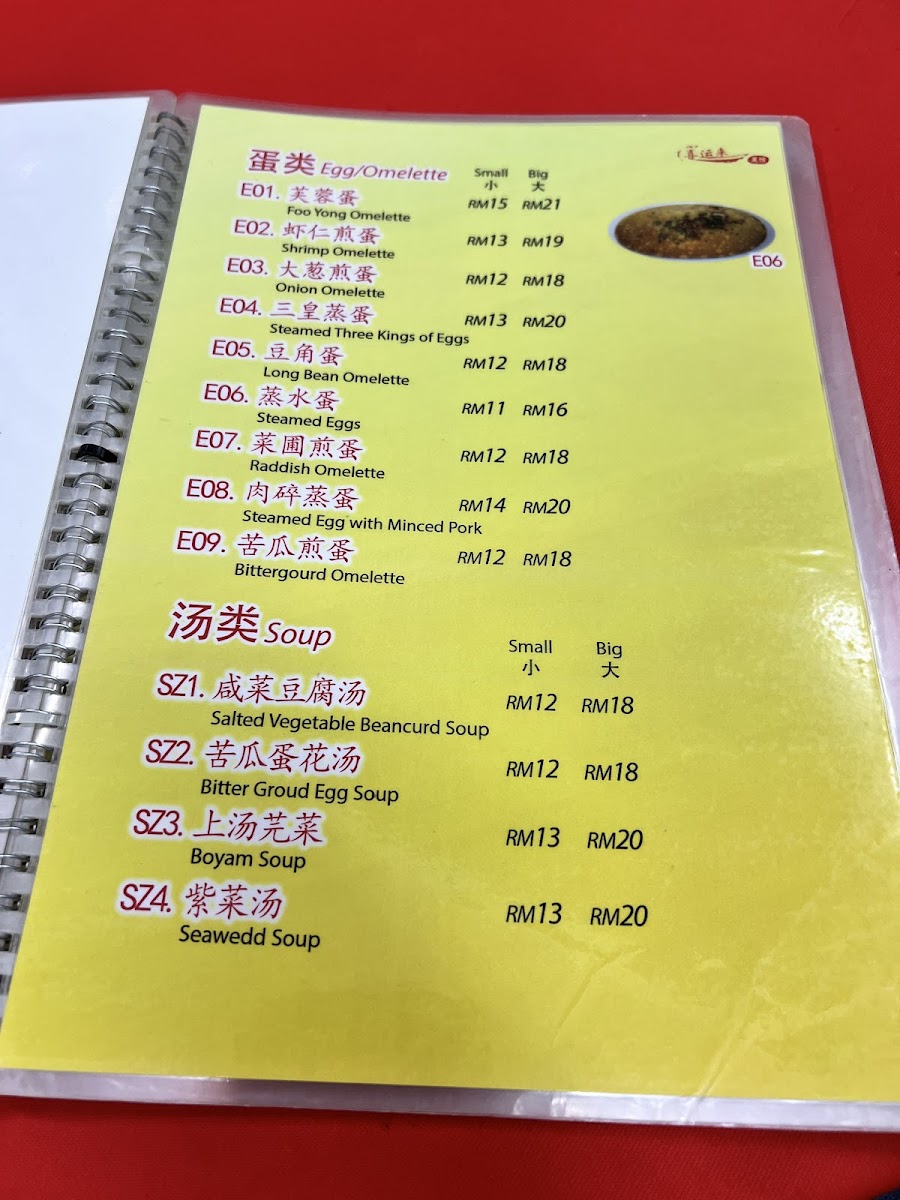 蛋类 Egg/Omelette
Small Big
小 大
E01. 芙蓉蛋 RM15 RM21
Foo Yong Omelette
E02. 虾仁煎蛋 RM13 RM19
Shrimp Omelette
E03. 大葱煎蛋 RM12 RM18
Onion Omelette
E04. 三皇蒸蛋 RM13 RM20
Steamed Three Kings of Eggs
E05. 豆角蛋 RM12 RM18
Long Bean Omelette
E06. 蒸水蛋 RM11 RM16
Steamed Eggs
E07. 菜圃煎蛋 RM12 RM18
Raddish Omelette
E08. 肉碎蒸蛋 RM14 RM20
Steamed Egg with Minced Pork
E09. 苦瓜煎蛋 RM12 RM18
Bittergourd Omelette
E06
汤类 Soup
Small Big
小 大
SZ1. 咸菜豆腐汤 RM12 RM18
Salted Vegetable Beancurd Soup
SZ2. 苦瓜蛋花汤 RM12 RM18
Bitter Groud Egg Soup
SZ3. 上汤苋菜 RM13 RM20
Boyam Soup
SZ4. 紫菜汤 RM13 RM20
Seawedd Soup